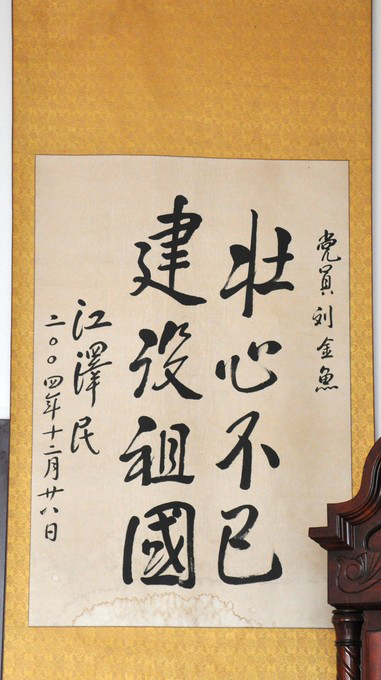 党員刘金魚
壮心不已
建设祖國
江澤民
二〇〇四年十二月廿八日